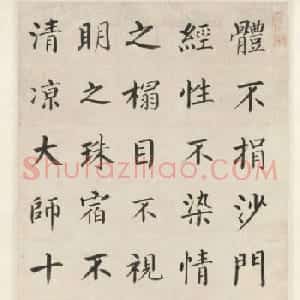 體不捐沙門
經性不染情
之榻目不視
眀之珠宿不
清凉大師十
Shufaziliao.com